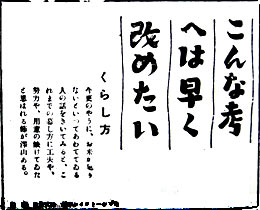 こんな考
へは早く
改めたい
くらし方
今更のやうに、お米が足り
ないといってあわててゐる
人の話をきいてみると、こ
れまでの暮し方に工夫や、
努力や、用意の缺けてゐた
と思はれる節が澤山ある。